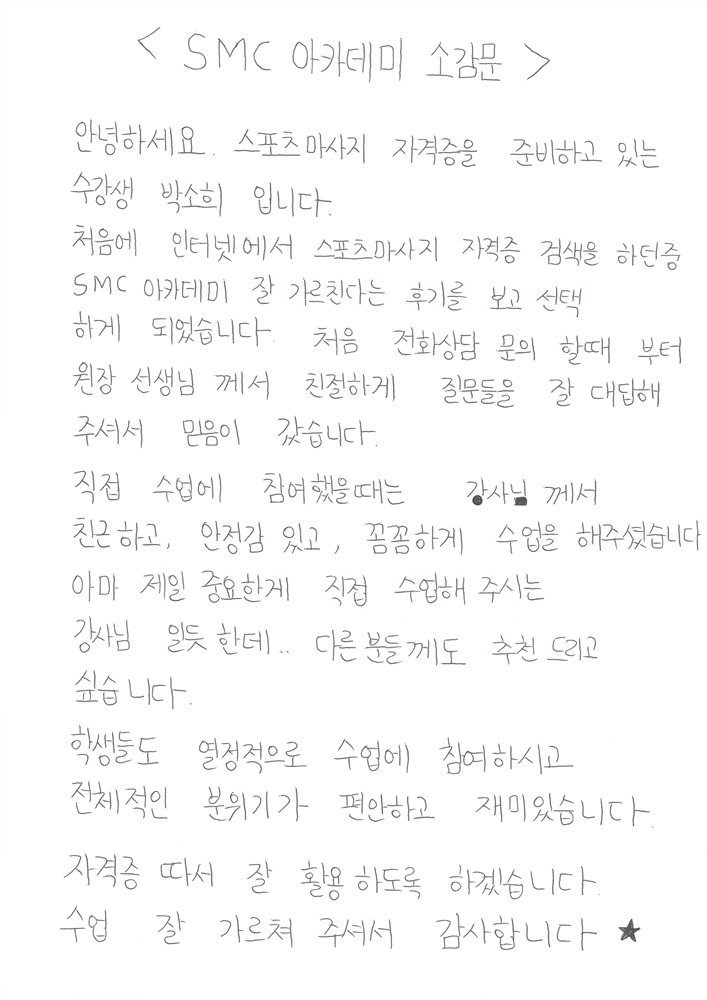 < SMC 아카데미 소감문 >
안녕하세요. 스포츠마사지 자격증을 준비하고 있는
수강생 박소희 입니다.
처음에 인터넷에서 스포츠마사지 자격증 검색을 하던중
SMC 아카데미 잘 가르친다는 후기를 보고 선택
하게 되었습니다. 처음 전화상담 문의 할때 부터
원장 선생님 께서 친절하게 질문들을 잘 대답해
주셔서 믿음이 갔습니다.
직접 수업에 참여했을때는 강사님 께서
친근하고, 안정감 있고, 꼼꼼하게 수업을 해주셨습니다
아마 제일 중요한게 직접 수업해 주시는
강사님 일듯 한데.. 다른분들께도 추천 드리고
싶습니다.
학생들도 열정적으로 수업에 참여하시고
전체적인 분위기가 편안하고 재미있습니다.
자격증 따서 잘 활용하도록 하겠습니다.
수업 잘 가르쳐 주셔서 감사합니다 ★